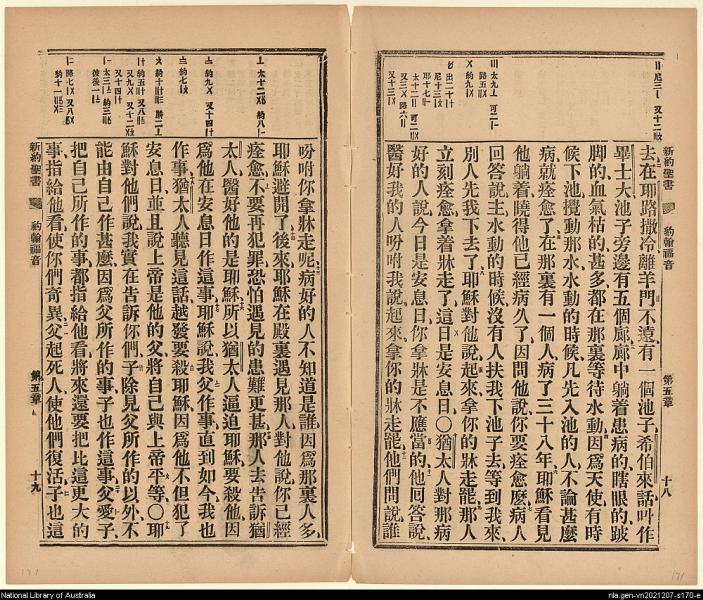 新約聖書 約翰福音 第五章 十八
去在耶路撒冷離羊門不遠有一個池子希伯來話叫作
畢士大池子旁邊有五個廊廊中躺着患病的瞎眼的跛
脚的血氣枯的甚多都在那裏等待水動因爲天使有時
候下池攪動那水水動的時候凡先入池的人不論甚麼
病就痊愈了在那裏有一個人病了三十八年耶穌看見
他躺着曉得他已經病久了因問他說你要痊愈麼病人
回答說主水動的時候沒有人扶我下池子去等到我來
別人先我下去了耶穌對他說起來拿你的牀走罷那人
立刻痊愈拿着牀走了這日是安息日〇猶太人對那病
好的人說今日是安息日你拿牀是不應當的他回答說
醫好我的人吩咐我說起來拿你的牀走罷他們問說誰
吩咐你拿牀走呢病好的人不知道是誰因爲那裏人多
耶穌避開了後來耶穌在殿裏遇見那人對他說你已經
痊愈不要再犯罪恐怕遇見的患難更甚那人去告訴猶
太人醫好他的是耶穌所以猶太人逼迫耶穌要殺他因
爲他在安息日作這事耶穌說我父作事直到如今我也
作事猶太人聽見這話越發要殺耶穌因爲他不但犯了
安息日並且說上帝是他的父將自己與上帝平等〇耶
穌對他們說我實在告訴你們子除見父所作的以外不
能由自己作甚麼因爲父所作的事子也作這事父愛子
把自己所作的事都指給他看將來還要把比這更大的
事指給他看使你們奇異父起死人使他們復活子也這
新約聖書 約翰福音 第五章 十九
National Library of Australia
nla.gen-vn2021207-s170-e